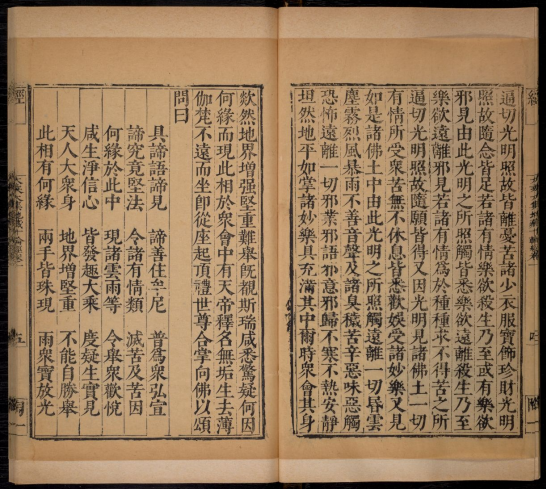 逼切光明照故皆離憂苦諸少衣服寶飾珍財光明
照故隨念皆足若諸有情樂欲殺生乃至或有樂欲
邪見由此光明之所照觸皆悉樂欲遠離殺生乃至
樂欲遠離邪見若諸有情為於種種求不得苦之所
逼切光明照故隨願皆得又因光明見諸佛土一切
有情所受衆苦無不休息皆悉歡娛受諸妙樂又見
如是諸佛土中由此光明之所照觸遠離一切昏雲
塵霧烈風暴雨不善音聲及諸臭穢苦辛惡味惡觸
恐怖遠離一切邪業邪語邪意邪歸不寒不熱安靜
坦然地平如掌諸妙樂具充滿其中爾時衆會其身
欻然地界增强堅重難舉旣覩斯瑞咸悉驚疑何因
何緣而現此相於衆會中有天帝釋名無垢生去薄
伽梵不遠而坐卽從座起頂禮世尊合掌向佛以頌
問曰
具諦語諦見 諦善住牟尼 普為衆弘宣
諦究竟堅法 令諸有情類 滅苦及苦因
何緣於此中 現諸雲雨等 令舉衆歡悅
咸生淨信心 皆發趣大乘 度疑生實見
天人大衆身 地界增堅重 不能自勝舉
此相有何緣 兩手皆珠現 雨衆寶放光